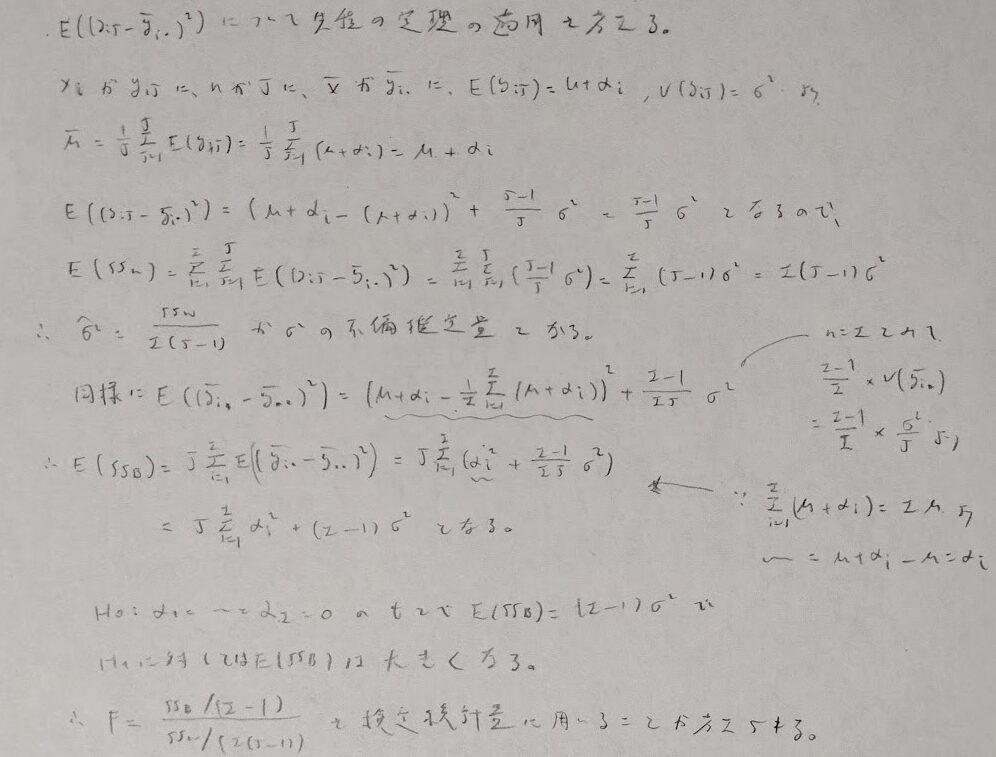 E((yij - ȳi.)²) について先程の定理の適用を考える。
xi が yij に、n が J に、x̄ が ȳi. に、E(yij) = μ+αi , V(yij) = σ² より
μ̄ = 1/J Σ_{j=1}^{J} E(yij) = 1/J Σ_{j=1}^{J} (μ+αi) = μ + αi
E((yij - ȳi.)²) = (μ + αi - (μ+αi))² + (J-1)/J σ² = (J-1)/J σ² となるので、
E(SSw) = Σ_{i=1}^{I} Σ_{j=1}^{J} E((yij - ȳi.)²) = Σ_{i=1}^{I} Σ_{j=1}^{J} ((J-1)/J σ²) = Σ_{i=1}^{I} (J-1)σ² = I(J-1)σ²
∴ σ̂² = SSw / I(J-1) が σ² の不偏推定量となる。
同様に E((ȳi. - ȳ..)²) = (μ+αi - 1/I Σ_{i=1}^{I} (μ+αi))² + (I-1)/IJ σ²
n=I とみて
(I-1)/I × V(ȳi.)
= (I-1)/I × σ²/J より
∴ E(SSB) = J Σ_{i=1}^{I} E((ȳi. - ȳ..)²) = J Σ_{i=1}^{I} (αi² + (I-1)/IJ σ²)
∵ Σ_{i=1}^{I} (μ+αi) = Iμ より
〜 = μ+αi - μ = αi
= J Σ_{i=1}^{I} αi² + (I-1)σ² となる。
H0 : α1 = 〜 = αI = 0 のもとで E(SSB) = (I-1)σ² で
H1 に対しては E(SSB) は大きくなる。
∴ F = SSB/(I-1) / SSw/(I(J-1)) を検定統計量に用いることが考えられる。